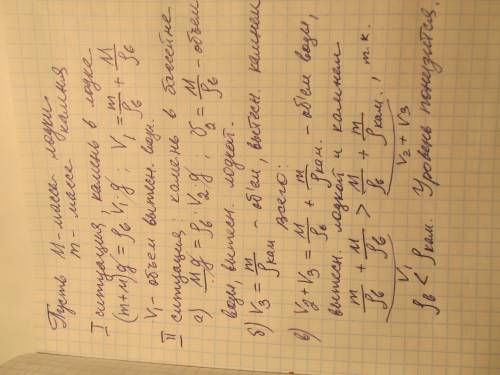 Пусть M - масса лодки
m - масса камня
I ситуация: камень в лодке
(m+M)g = ρв V₁g ; V₁ = m/ρв + M/ρв
V₁ - объем вытесн. воды.
II ситуация: камень в бассейне
а) Mg = ρв·V₂g ; V₂ = M/ρв - объем
воды, вытесн. лодкой.
б) V₃ = m/ρкам - об'ём, вытесн. камнем
в) Всего:
V₂ + V₃ = M/ρв + m/ρкам. - об'ем воды,
вытесн. лодкой и камнем
m/ρв + M/ρв > M/ρв + m/ρкам. , т.к.
V₁ V₂ + V₃
ρв < ρкам. Уровень понизится.